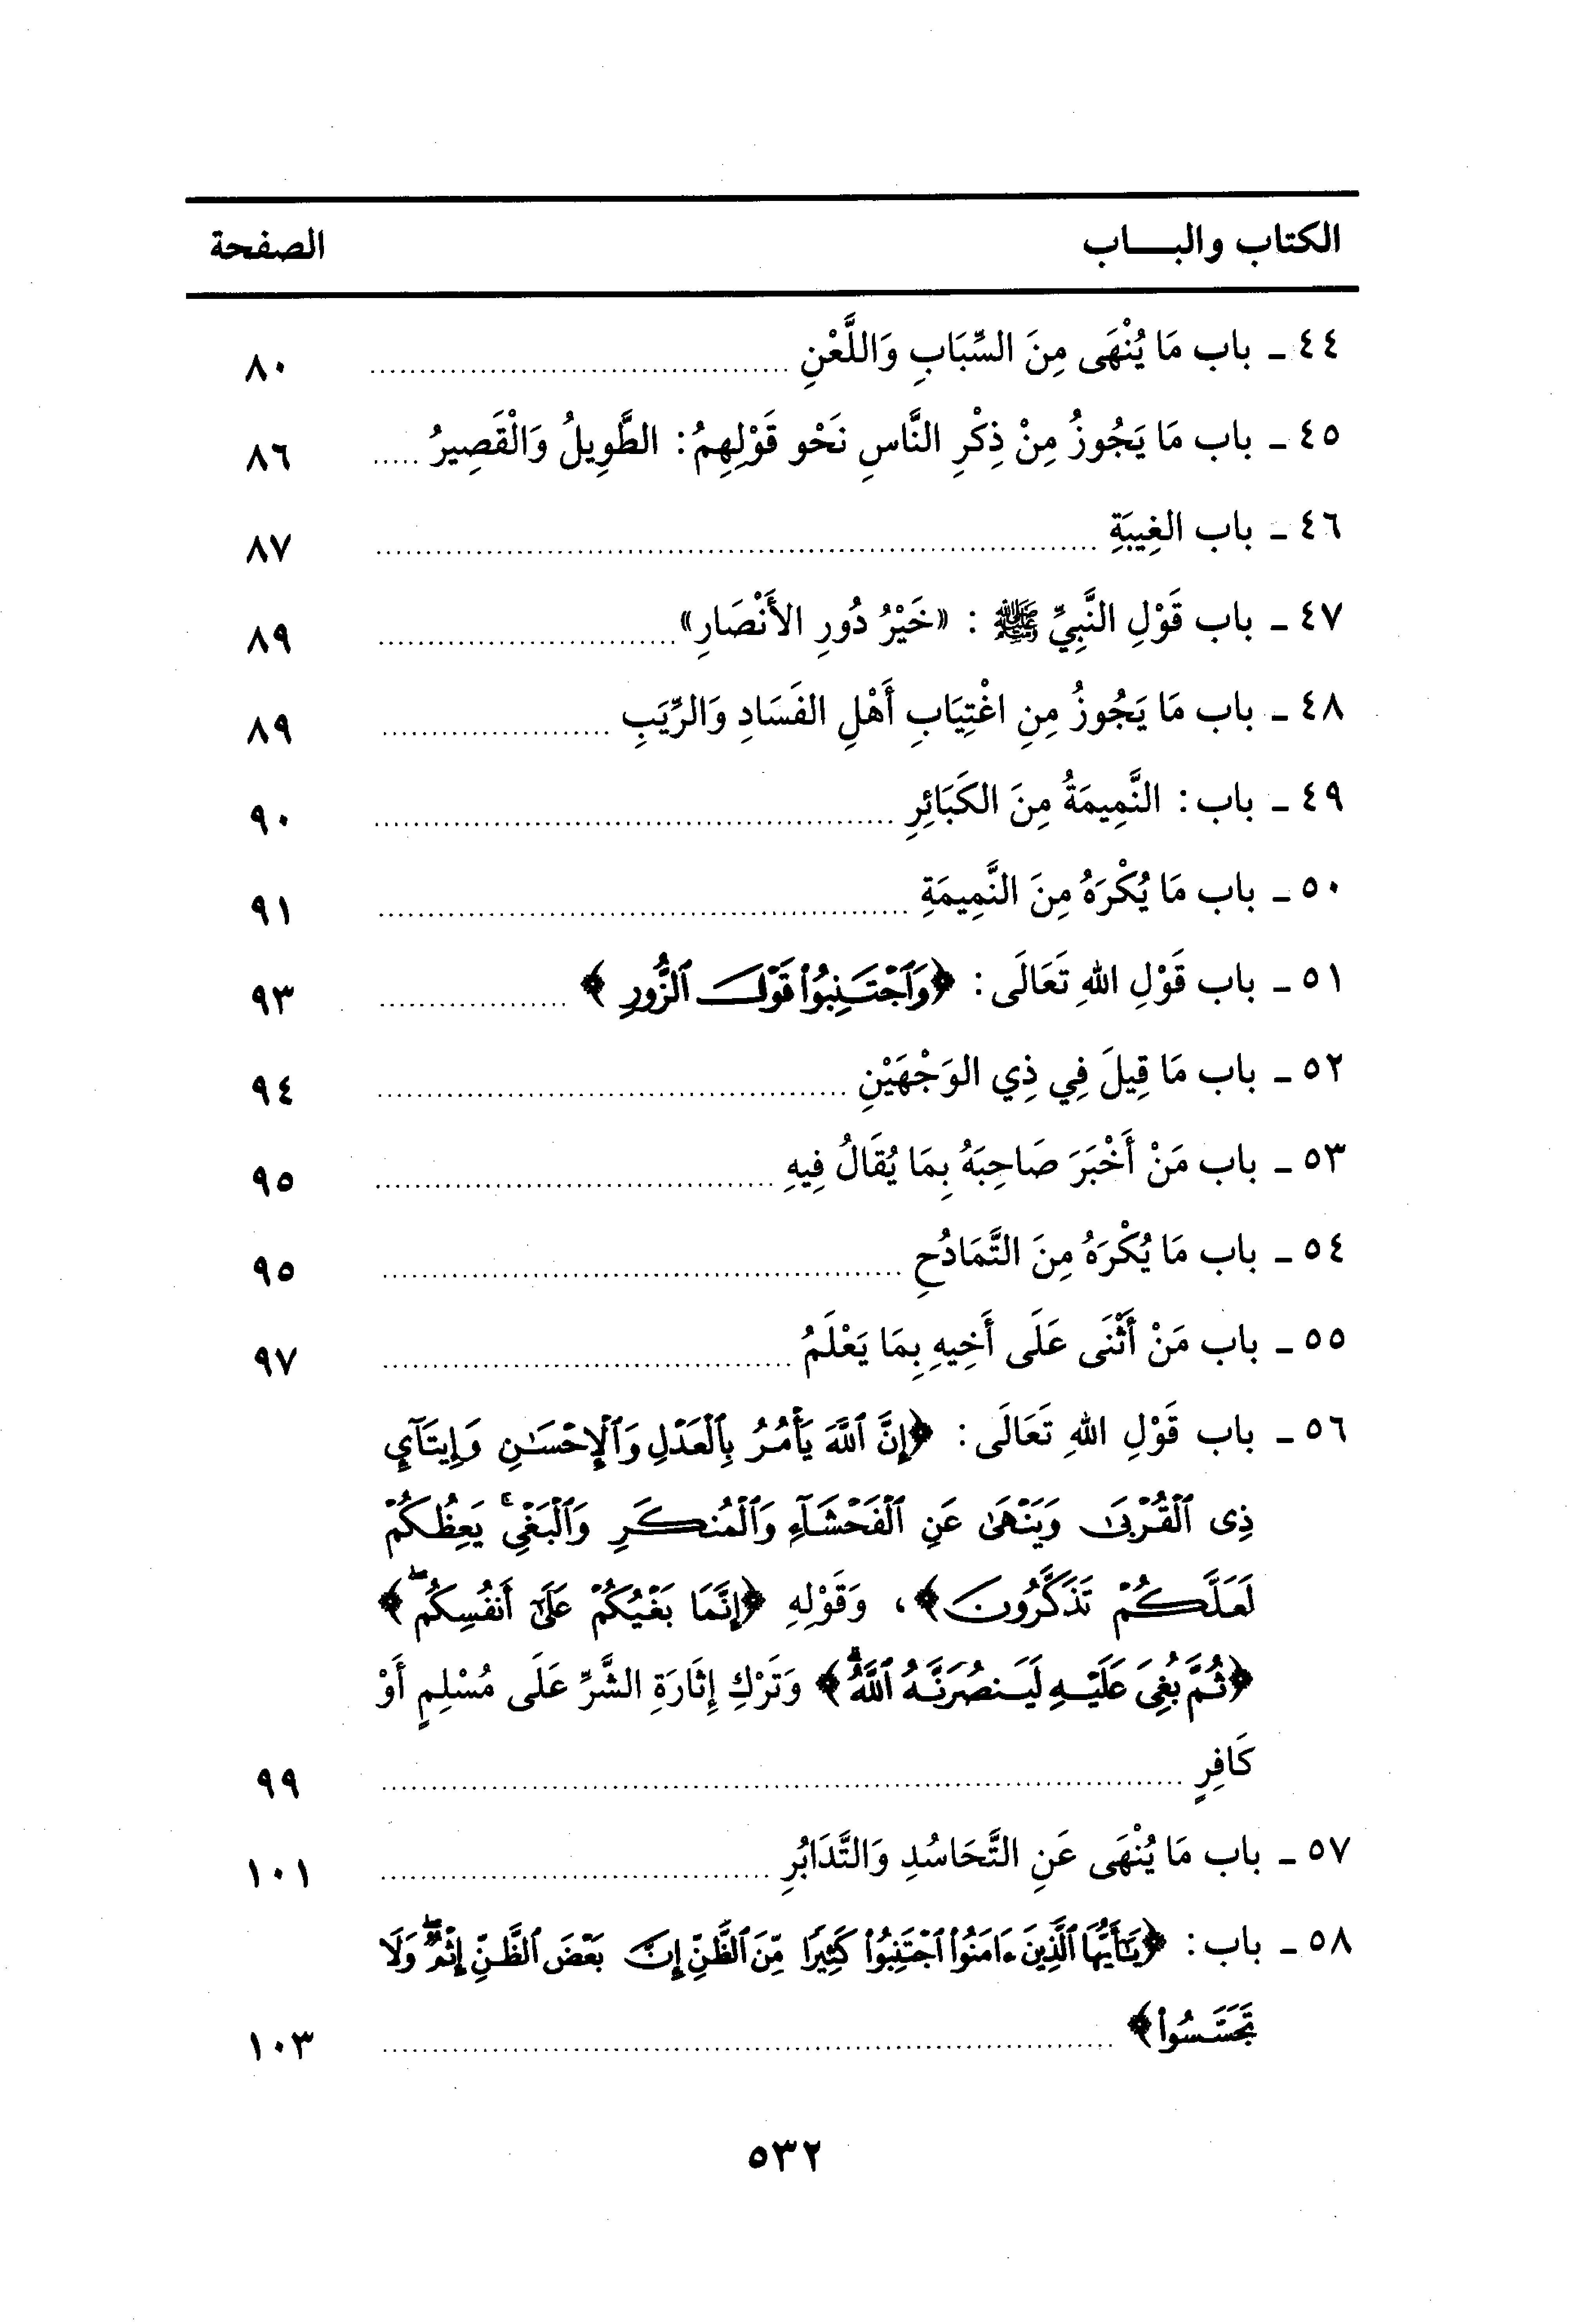 الكتاب والبـــاب الصفحة
٤٤ ـ باب مَا يُنْهَى مِنَ السِّبَابِ وَاللَّعْنِ ........ ٨٠
٤٥ ـ باب مَا يَجُوزُ مِنْ ذِكْرِ النَّاسِ نَحْو قَوْلِهِمُ: الطَّوِيلُ وَالْقَصِيرُ ..... ٨٦
٤٦ ـ باب الغِيبَةِ ........ ٨٧
٤٧ ـ باب قَوْلِ النَّبِيِّ ﷺ : «خَيْرُ دُورِ الأَنْصَارِ» ........ ٨٩
٤٨ ـ باب مَا يَجُوزُ مِنِ اغْتِيَابِ أَهْلِ الفَسَادِ وَالرِّيَبِ ........ ٨٩
٤٩ ـ باب: النَّمِيمَةُ مِنَ الكَبَائِرِ ........ ٩٠
٥٠ ـ باب مَا يُكْرَهُ مِنَ النَّمِيمَةِ ........ ٩١
٥١ ـ باب قَوْلِ اللهِ تَعَالَى: ﴿وَٱجْتَنِبُوا۟ قَوْلَ ٱلزُّورِ﴾ ........ ٩٣
٥٢ ـ باب مَا قِيلَ فِي ذِي الوَجْهَيْنِ ........ ٩٤
٥٣ ـ باب مَنْ أَخْبَرَ صَاحِبَهُ بِمَا يُقَالُ فِيهِ ........ ٩٥
٥٤ ـ باب مَا يُكْرَهُ مِنَ التَّمَادُحِ ........ ٩٥
٥٥ ـ باب مَنْ أَثْنَى عَلَى أَخِيهِ بِمَا يَعْلَمُ ........ ٩٧
٥٦ ـ باب قَوْلِ اللهِ تَعَالَى: ﴿إِنَّ ٱللَّهَ يَأْمُرُ بِٱلْعَدْلِ وَٱلْإِحْسَـٰنِ وَإِيتَآئِ
ذِى ٱلْقُرْبَىٰ وَيَنْهَىٰ عَنِ ٱلْفَحْشَآءِ وَٱلْمُنكَرِ وَٱلْبَغْىِ ۚ يَعِظُكُمْ
لَعَلَّكُمْ تَذَكَّرُونَ﴾، وَقَوْلِهِ ﴿إِنَّمَا بَغْيُكُمْ عَلَىٰٓ أَنفُسِكُم ۖ﴾
﴿ثُمَّ بُغِىَ عَلَيْهِ لَيَنصُرَنَّهُ ٱللَّهُ ۗ﴾ وَتَرْكِ إِثَارَةِ الشَّرِّ عَلَى مُسْلِمٍ أَوْ
كَافِرٍ ........ ٩٩
٥٧ ـ باب مَا يُنْهَى عَنِ التَّحَاسُدِ وَالتَّدَابُرِ ........ ١٠١
٥٨ ـ باب: ﴿يَـٰٓأَيُّهَا ٱلَّذِينَ ءَامَنُوا۟ ٱجْتَنِبُوا۟ كَثِيرًا مِّنَ ٱلظَّنِّ إِنَّ بَعْضَ ٱلظَّنِّ إِثْمٌ ۖ وَلَا
تَجَسَّسُوا۟﴾ ........ ١٠٣
٥٣٢